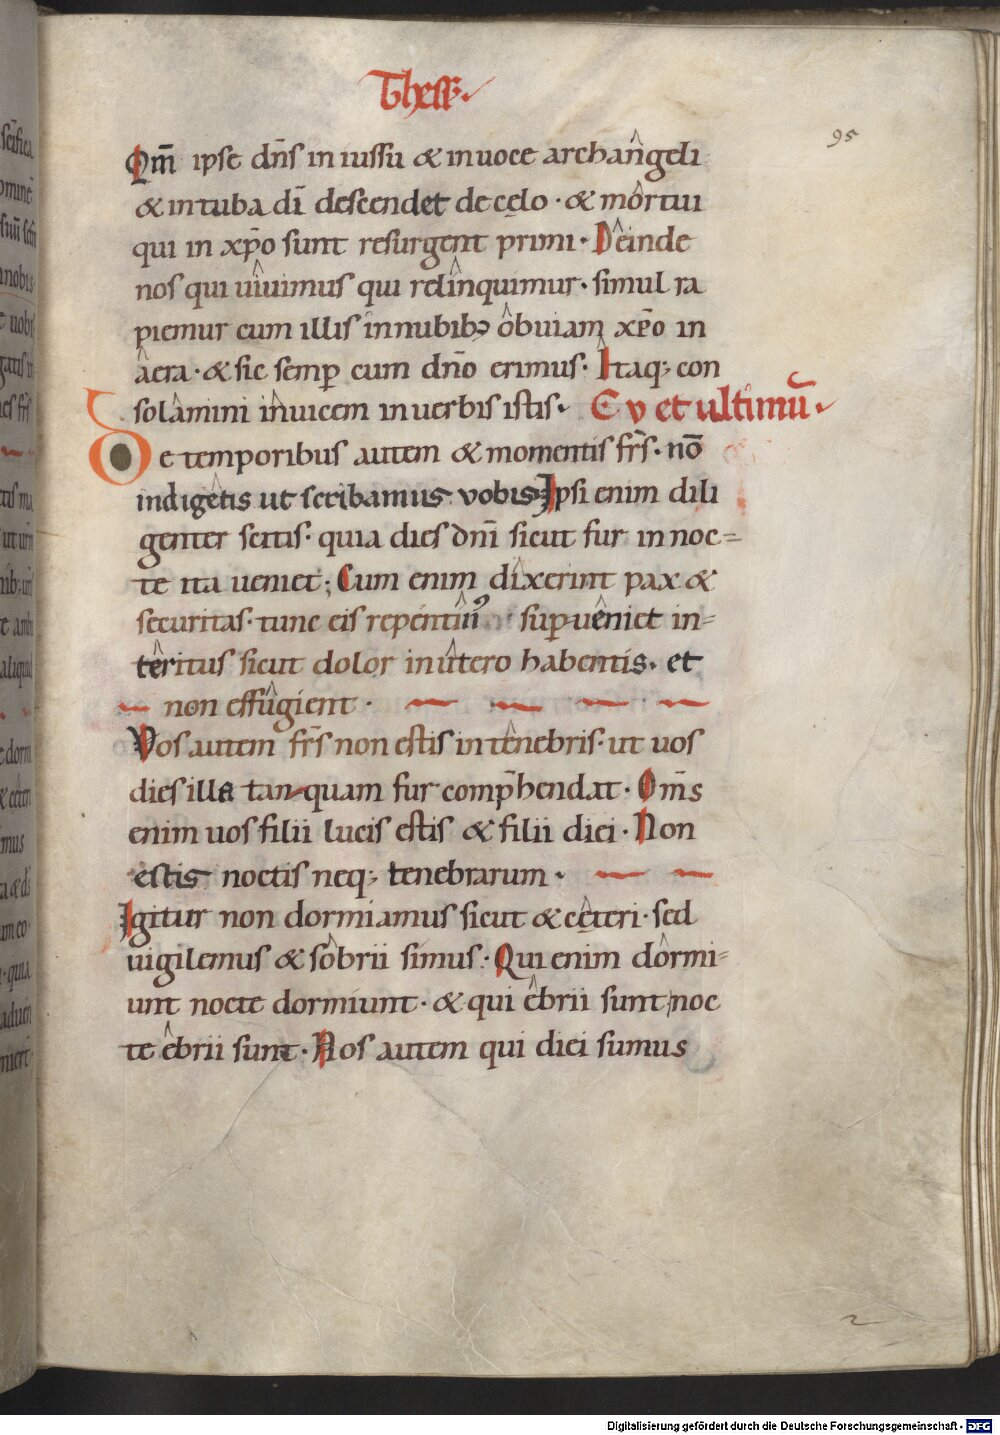 Thess
95
Qm̄ ipse dn̄s in iussu & in uoce archangeli
& in tuba dī descendet de cęlo · & mortui
qui in xp̄o sunt resurgent primi · Deinde
nos qui uiuimus qui relinquimur · simul ra
piemur cum illis in nubibꝫ obuiam xp̄o in
aera · & sic semꝑ cum dn̄o erimus · Itaqꝫ con
solamini inuicem in uerbis istis · C v et ultimū
De temporibus autem & momentis fr̄s · nō
indigetis ut scribamus vobis Ipsi enim dili
genter scitis · quia dies dn̄i sicut fur in noc=
te ita ueniet ; Cum enim dixerint pax &
securitas · tunc eis repentinꝰ suꝑueniet in-
teritus sicut dolor in utero habentis · et
non effugient ·
Vos autem fr̄s non estis in tenebris · ut uos
dies illa tan-quam fur comp̄hendat · Om̄s
enim uos filii lucis estis & filii diei · Non
estis noctis neqꝫ tenebrarum ·
Igitur non dormiamus sicut & cęteri · sed
uigilemus & sobrii simus · Qui enim dormi=
unt nocte dormiunt · & qui ebrii sunt noc
te ebrii sunt · Nos autem qui diei sumus
Digitalisierung gefördert durch die Deutsche Forschungsgemeinschaft - DFG